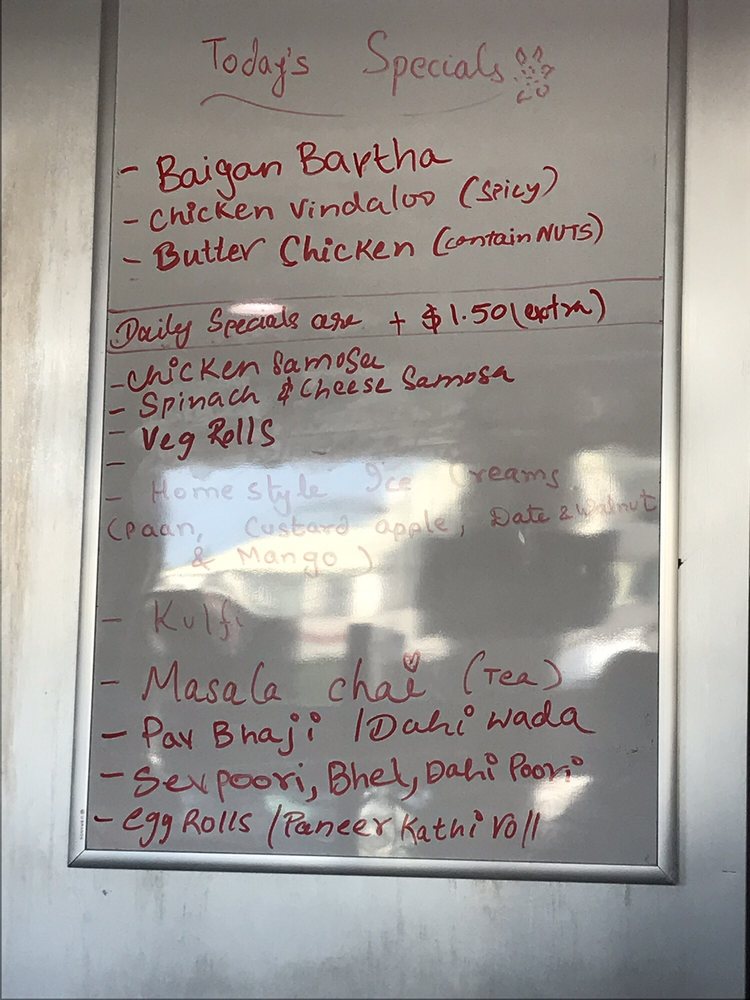 Today's Specials
- Baigan Bartha
- Chicken Vindaloo (Spicy)
- Butter Chicken (contain NUTS)
Daily Specials are + $1.50 (extra)
- Chicken Samosa
- Spinach & Cheese Samosa
- Veg Rolls
-
- Home style Ice Creams
(Paan, Custard apple, Date & Walnut
& Mango)
- Kulfi
- Masala chai (Tea)
- Pav Bhaji / Dahi wada
- Sevpoori, Bhel, Dahi Poori
- egg Rolls / Paneer Kathi roll